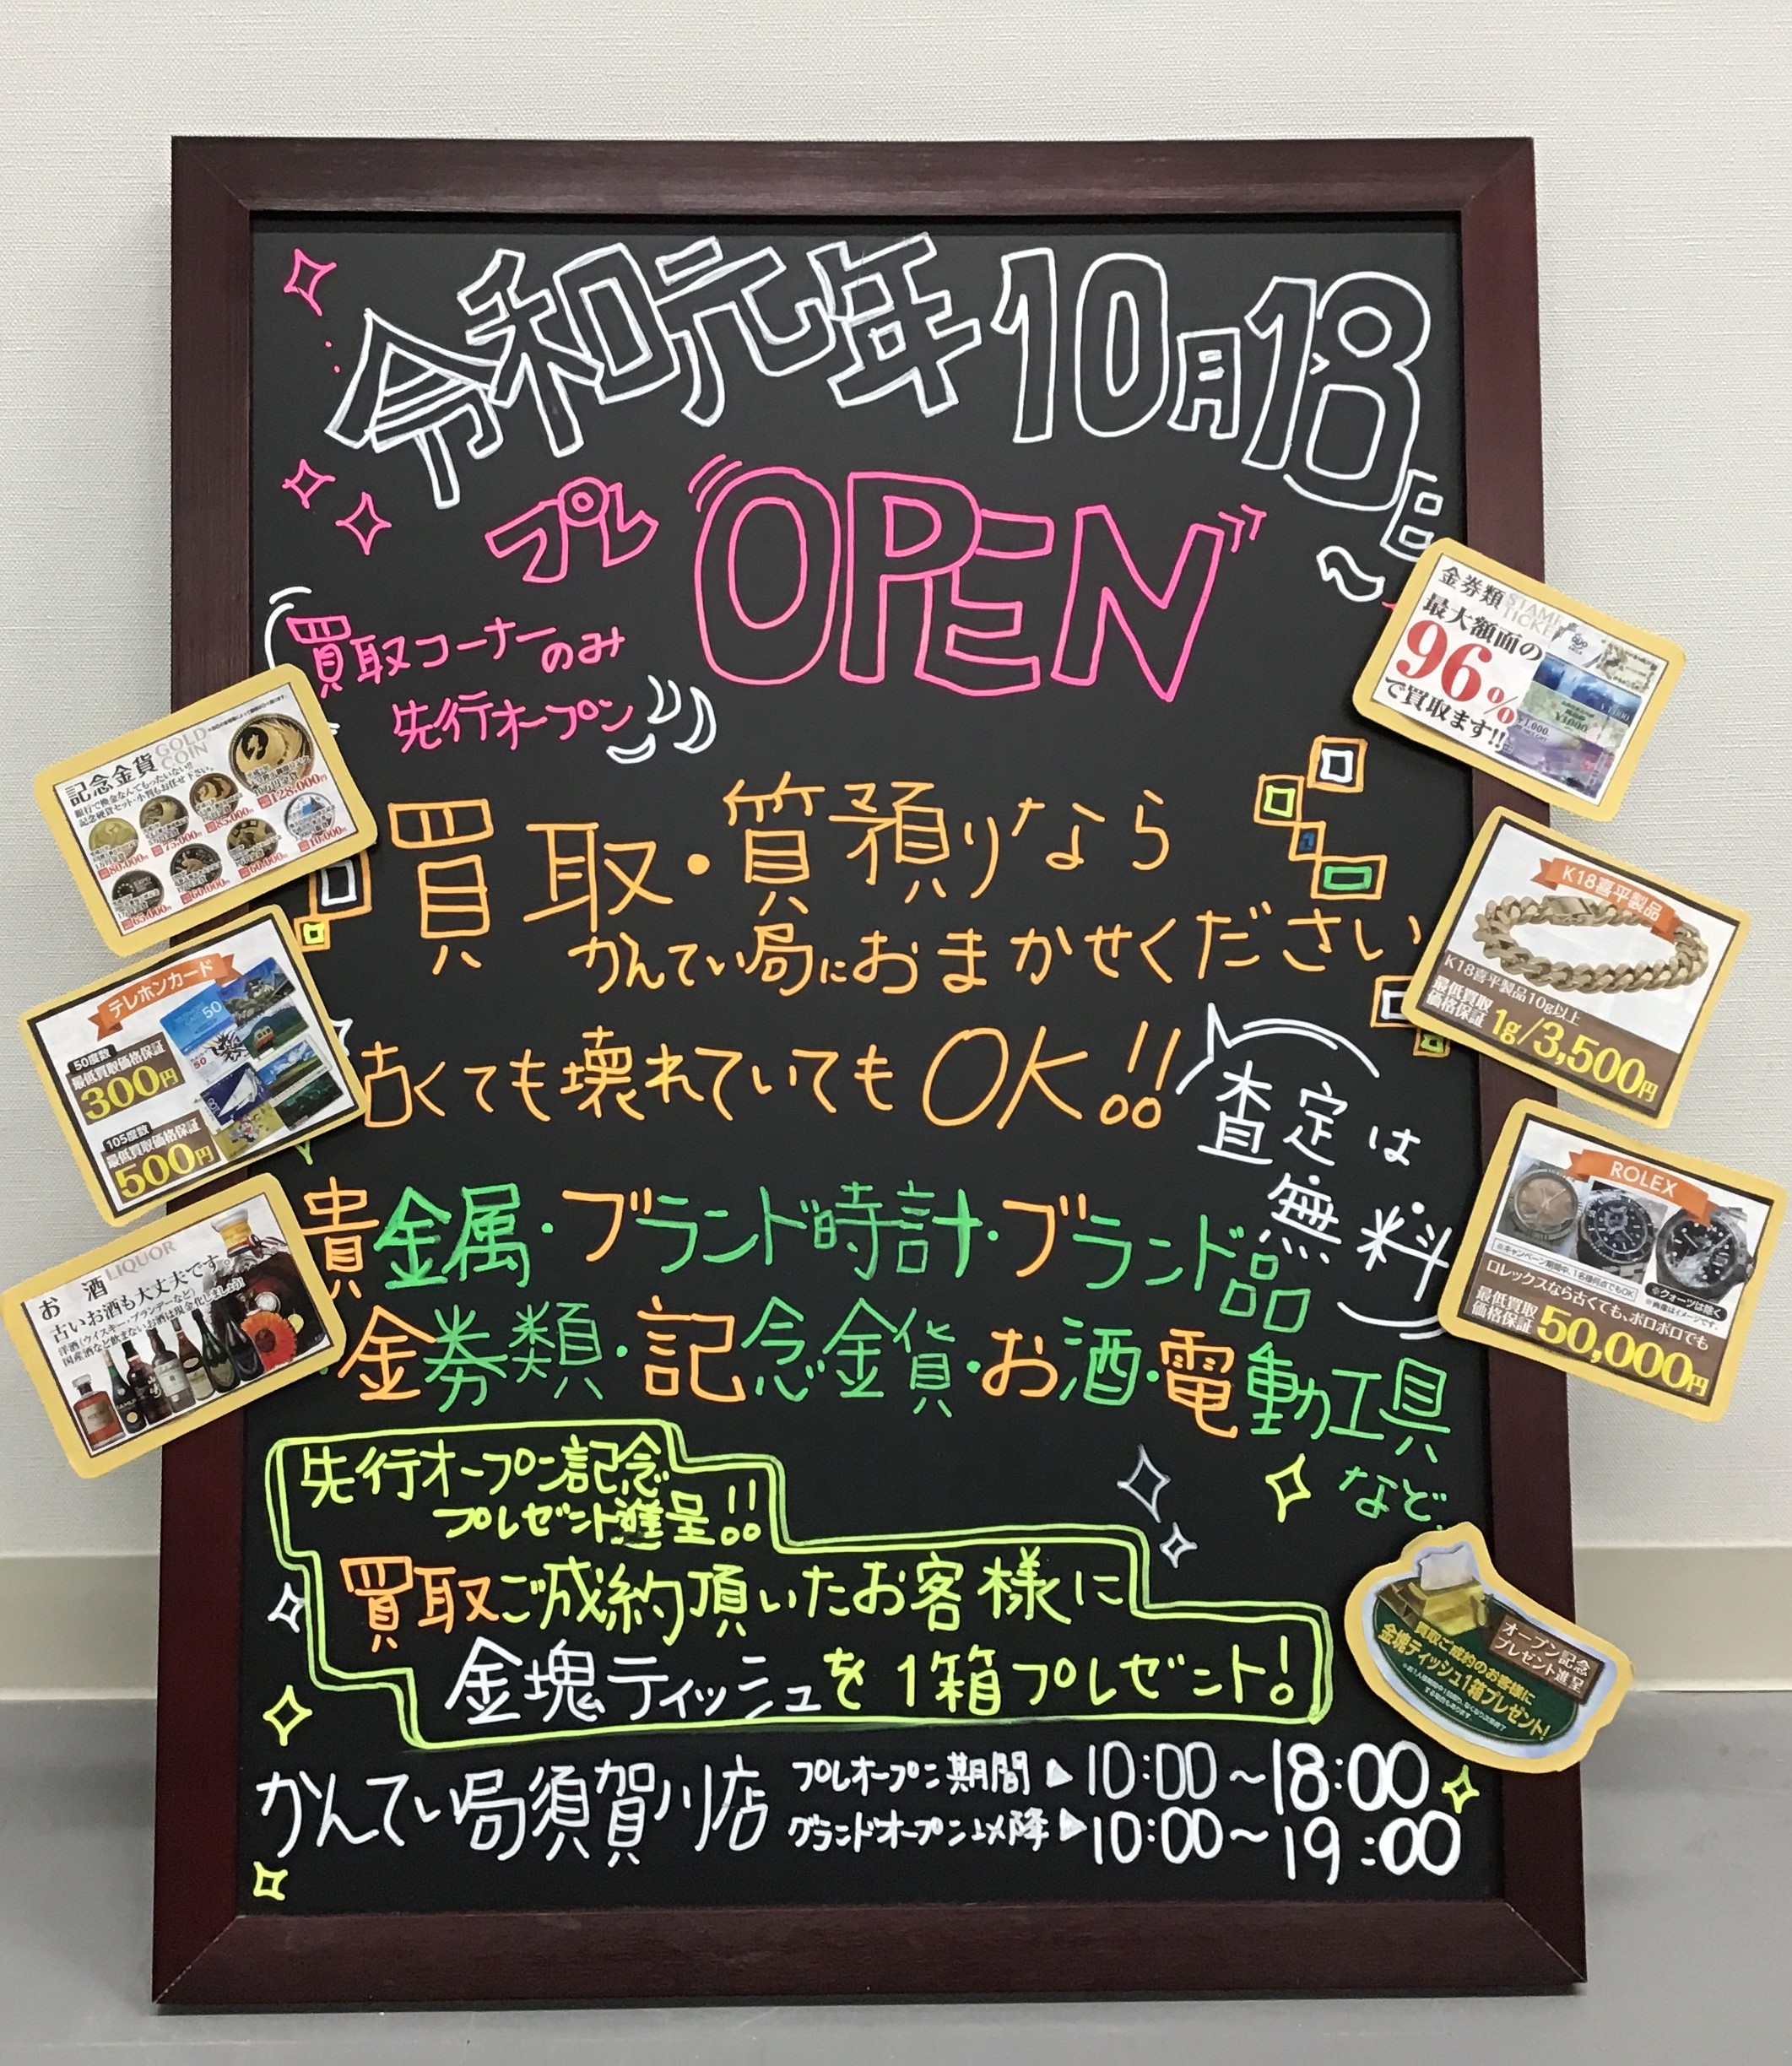 令和元年10月18日~
プレOPEN
買取コーナーのみ
先行オープン
金券類
STAMP TICKET
最大額面の
96%
で買取ます!!
記念金貨
GOLD COIN
銀行で換金なんてもったいない!!
記念硬貨セット・小判もお任せ下さい。
128,000円
85,000円
75,000円
80,000円
10,000円
60,000円
60,000円
65,000円
買取・質預りなら
かんてい局におまかせください
K18喜平製品
K18喜平製品10g以上
最低買取価格保証
1g/3,500円
テレホンカード
50度数
最低買取価格保証
300円
105度数
最低買取価格保証
500円
古くても壊れていてもOK!!
査定は
無料
ROLEX
※キャンペーン期間中、1名様何点でもOK
※クォーツは除く
※画像はイメージです。
ロレックスなら古くても、ボロボロでも
最低買取価格保証
50,000円
お酒
LIQUOR
古いお酒も大丈夫です。
洋酒(ウイスキー・ブランデーなど)
国産酒など飲まないお酒は現金化しましょう!
貴金属・ブランド時計・ブランド品
金券類・記念金貨・お酒・電動工具
など
先行オープン記念
プレゼント進呈!!
買取ご成約頂いたお客様に
金塊ティッシュを1箱プレゼント!
オープン記念
プレゼント進呈
買取ご成約のお客様に
金塊ティッシュ1箱プレゼント!
かんてい局須賀川店
プレオープン期間▶10:00~18:00
グランドオープン以降▶10:00~19:00